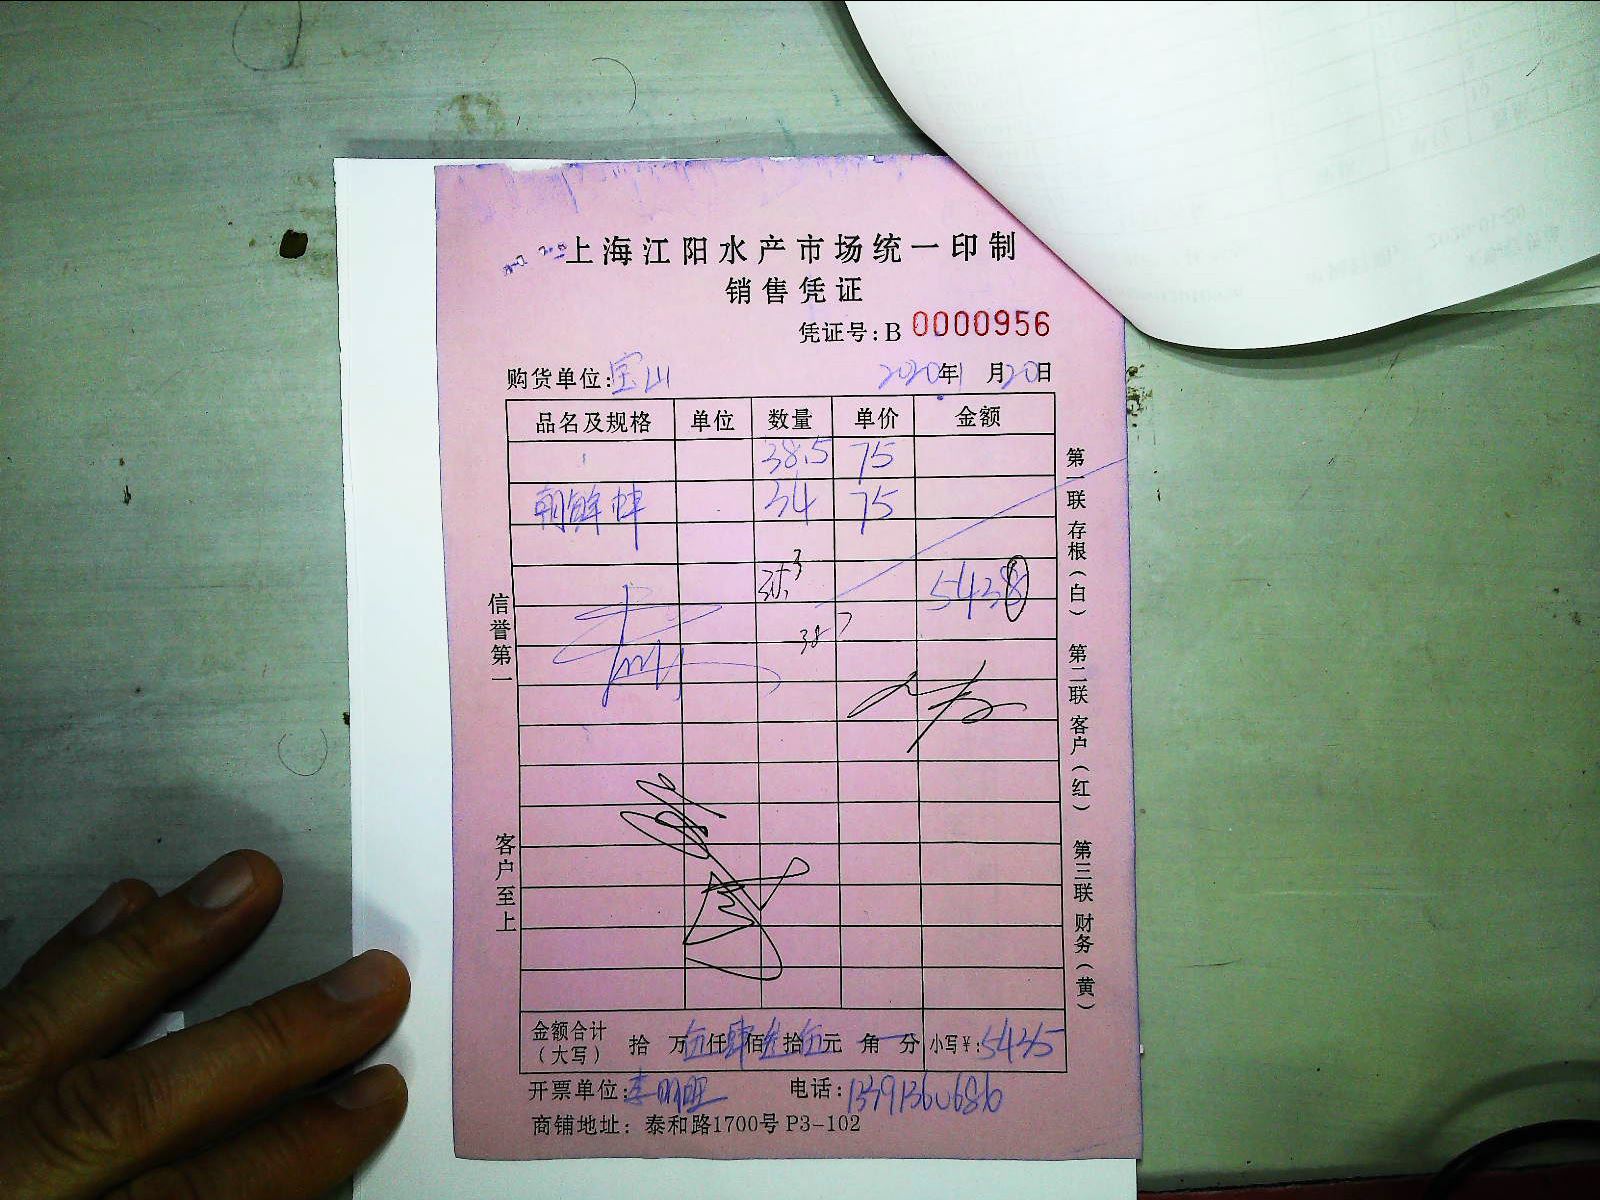 上海江阳水产市场统一印制
销售凭证
凭证号:B 0000956
购货单位:宝山 2020年1月20日
品名及规格 单位 数量 单价 金额
38.5 75
朝鲜蚌 34 75
543
信誉第一
客户至上
第一联 存根(白) 第二联 客户(红) 第三联 财务(黄)
金额合计(大写) 拾 万伍仟肆佰叁拾伍元 角 分 小写¥:5435
开票单位:李明旺 电话:1391360686
商铺地址: 泰和路1700号 P3-102